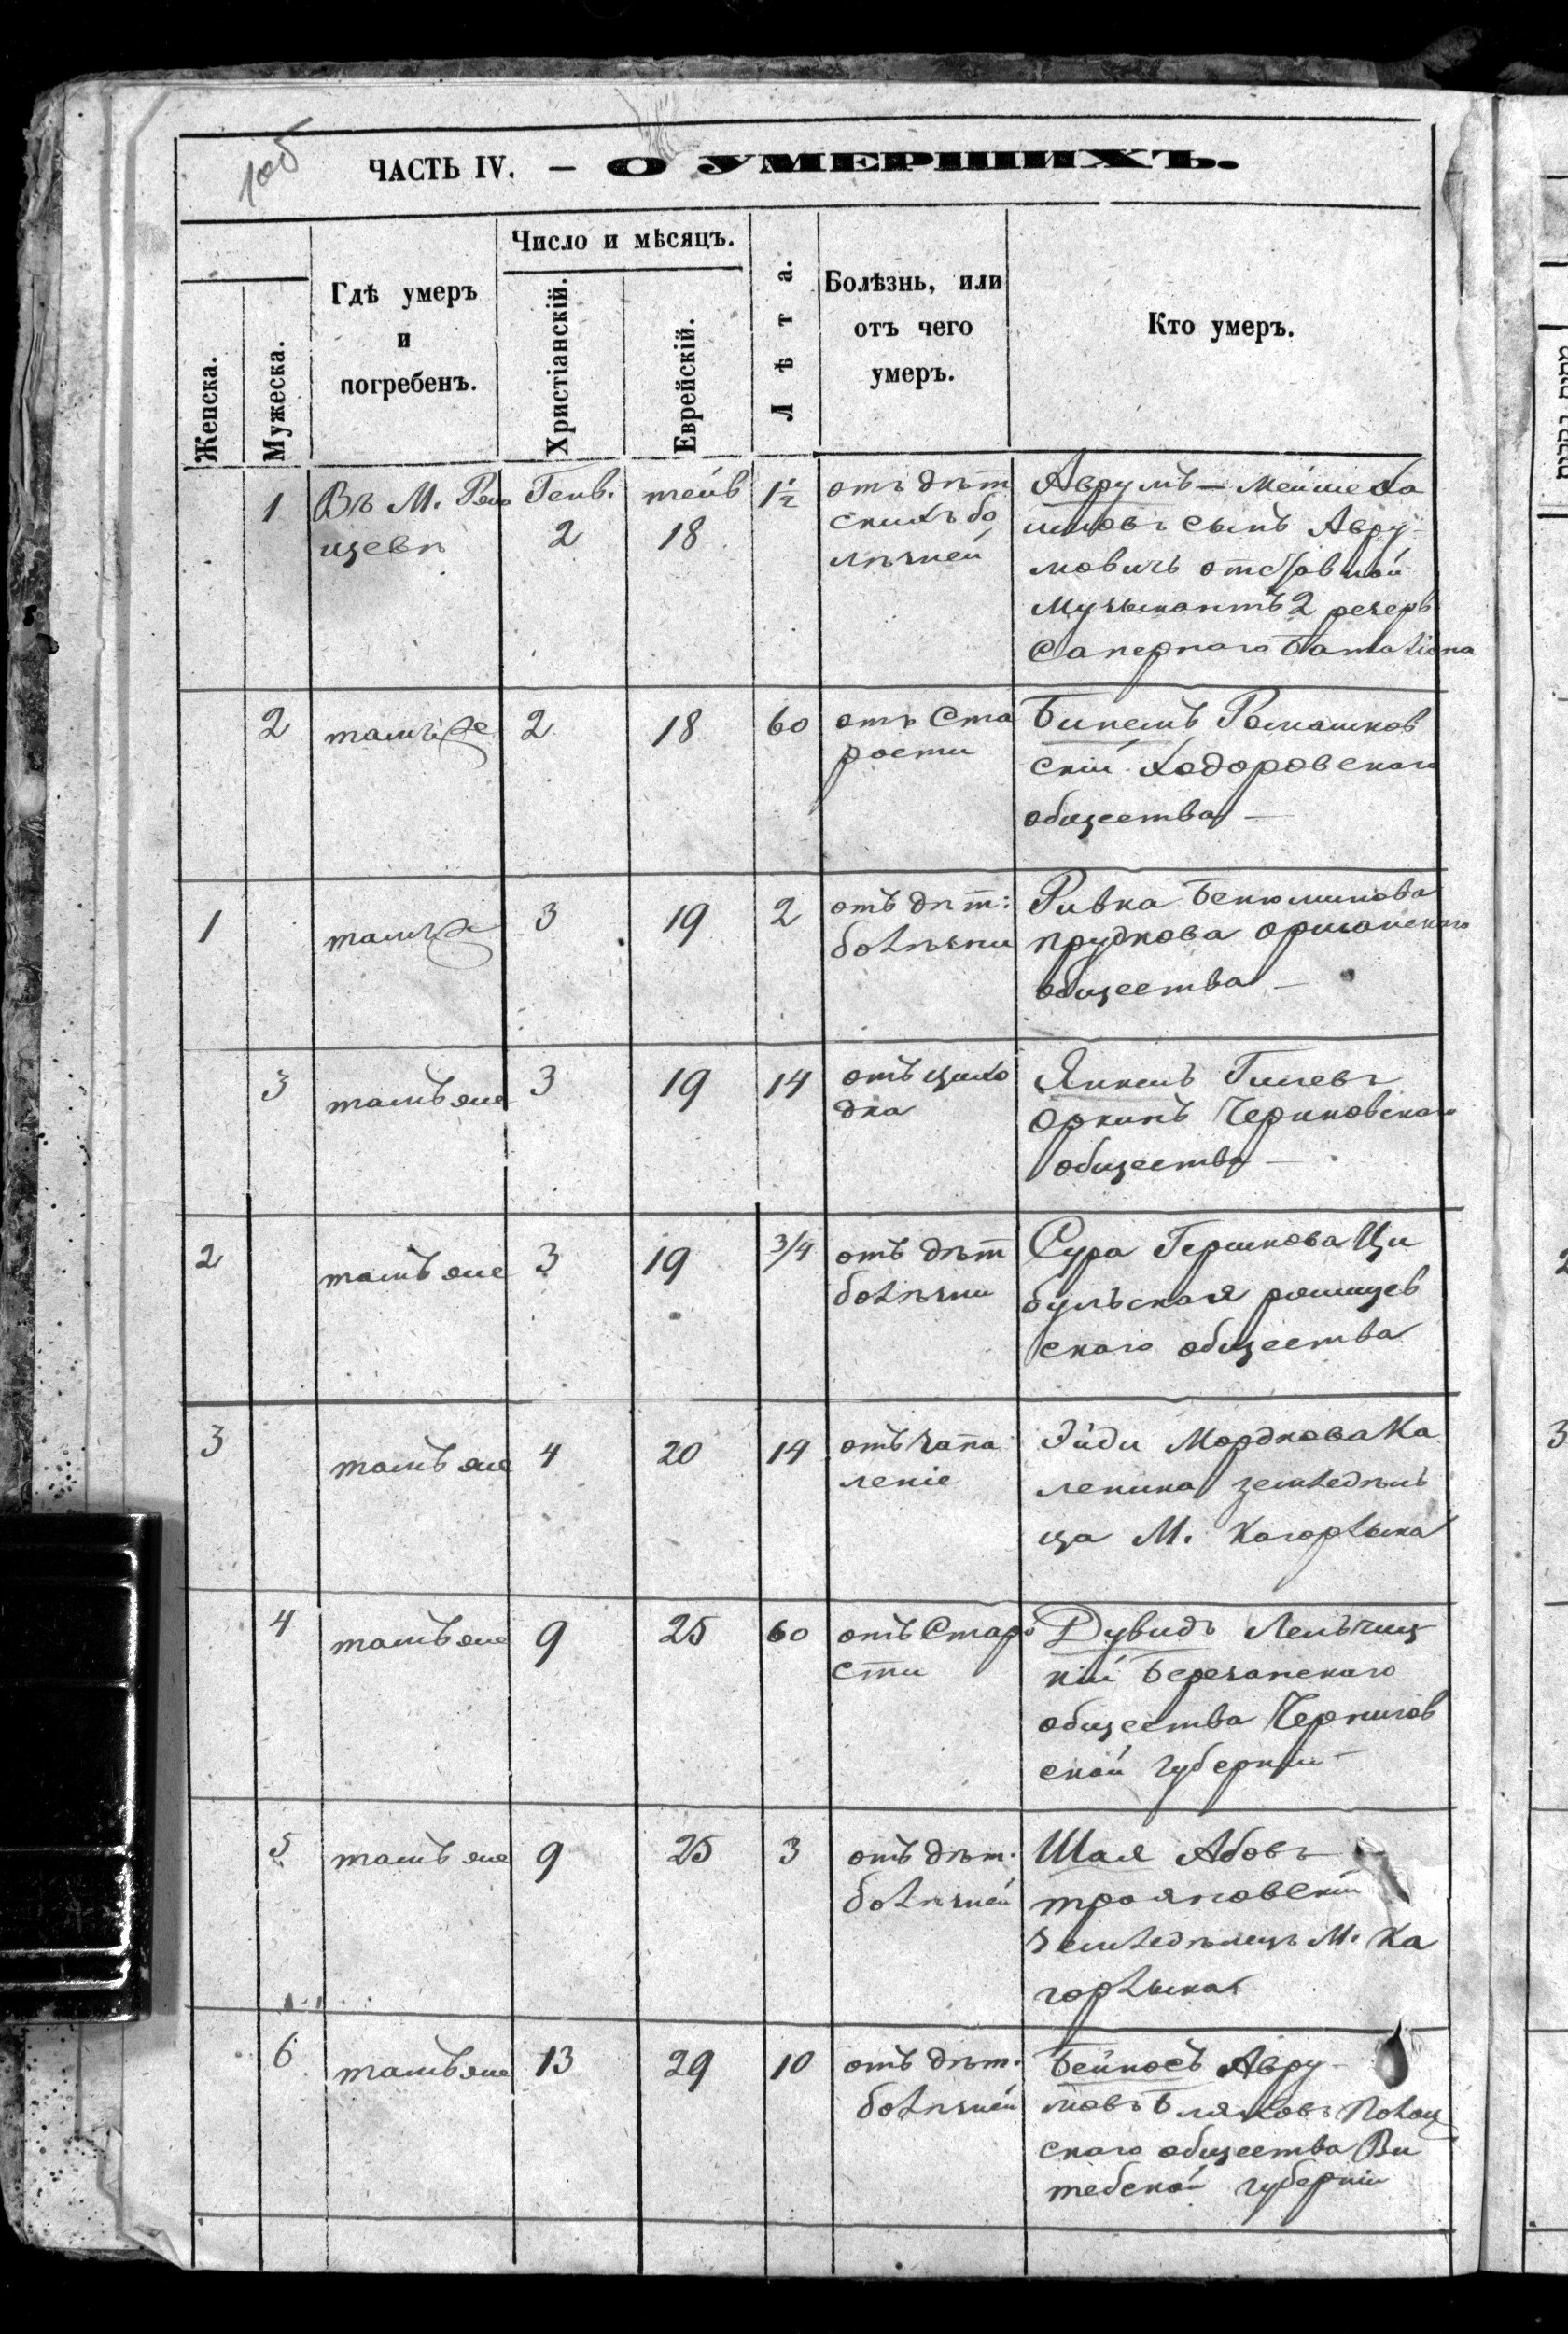 1об
ЧАСТЬ IV. — О УМЕРШИХЪ.
Женска.
Мужеска.
Гдѣ умеръ
и
погребенъ.
Число и мѣсяцъ.
Христіанскій.
Еврейскій.
Лѣта.
Болѣзнь, или
отъ чего
умеръ.
Кто умеръ.
1
Въ М. Рж
щевѣ
Генв.
2
тейв
18
1½
отъ дѣт
скихъ бо
лѣзней
Аврумъ — Мейше Ха
имовъ сынъ Авру-
мовичъ отставной
музыкантъ 2 резерв
Сапернаго Баталіона
2
тамже
2
18
60
отъ Ста
рости
Бинемъ Ромашков
скій Ходоровскаго
общества —
1
тамже
3
19
2
отъ дѣт:
болѣзни
Ривка Бенюминова
прудкова оршанскаго
общества —
3
тамъ же
3
19
14
отъ
Янкель
оркинъ Чериковскаго
общества —
2
тамъ же
3
19
3/4
отъ дѣт
болѣзни
Сура Гершкова Ци
бульская ржищев
скаго общества
3
тамъ же
4
20
14
отъ запа
леніе
Эйди Мордкова Ка
ленина земледѣль
ца М. Кагорлыка
4
тамъ же
9
25
60
отъ Старо
сти
Дувидъ
кій Березанскаго
общества Чернигов
ской губерніи —
5
тамъ же
9
25
3
отъ дѣт.
болѣзней
Шая Абовъ
трояновскій
земледѣлецъ М. Ка
горлыка
6
тамъ же
13
29
10
отъ дѣт.
болѣзней
Бейносъ Авру-
мовъ Полоц
скаго общества Ви
тебской губерніи
2
3